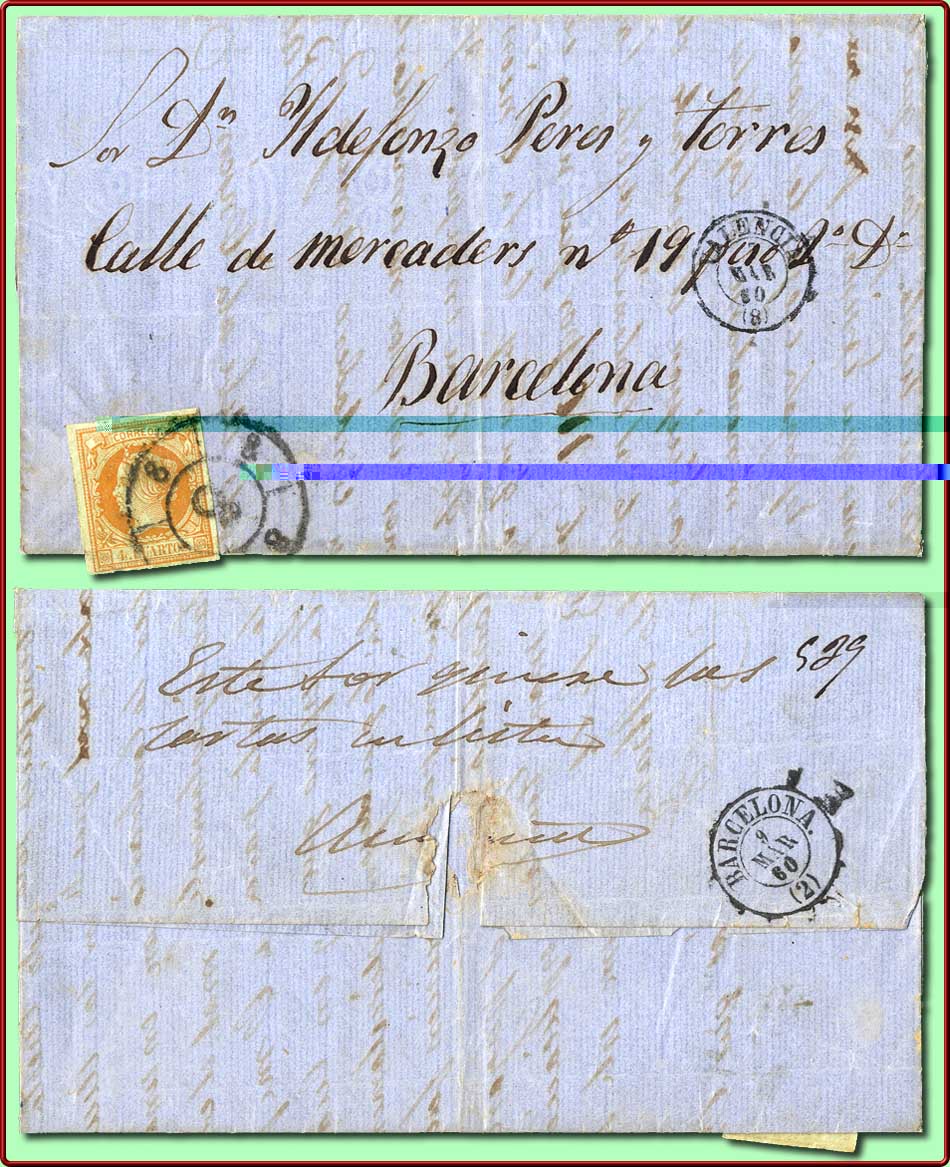 Sor Dn Ildefonzo Peres y Torres
Calle de mercaders nº 19 piso 2º Dr
Barcelona
VALENCIA
MAR
60
(8)
CORREOS
4 CUARTOS
Este Sor quiere las
cartas en lista
529
BARCELONA.
9
MAR
60
(2)